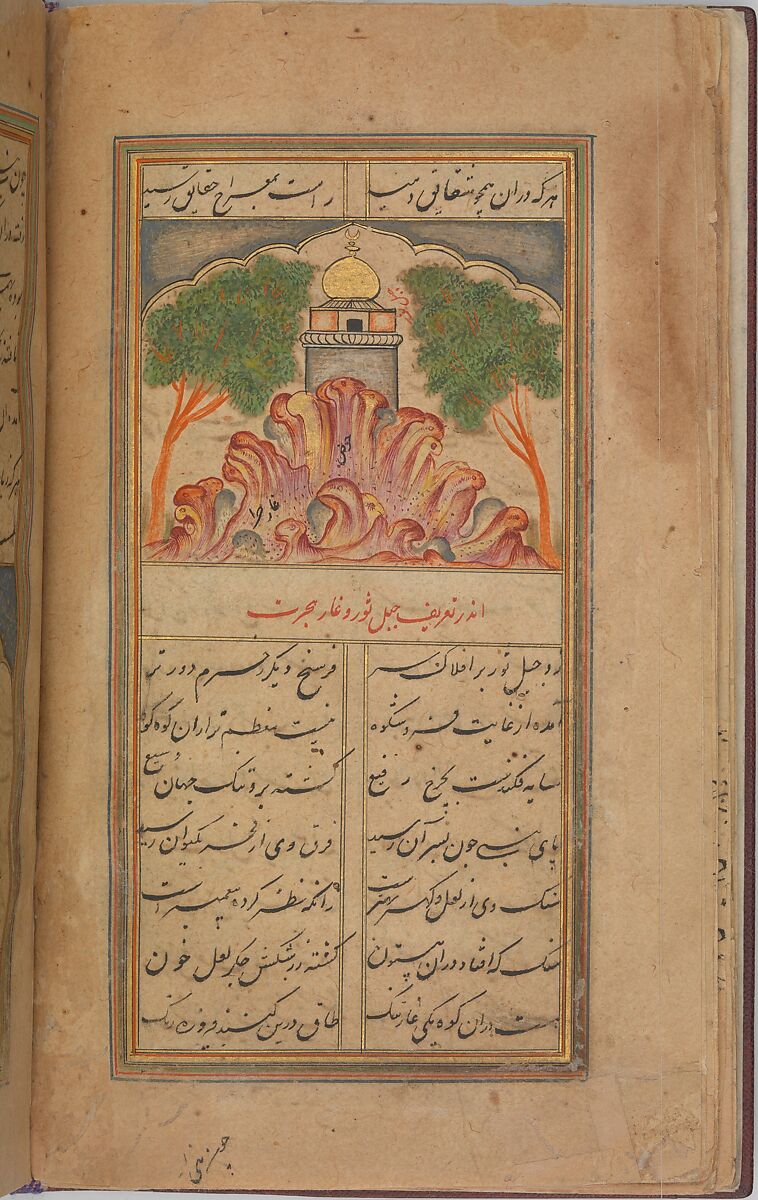 هر که در آن همچو شقایق دمید راست بمعراج حقایق رسید
جبل نور
حوض
غار حرا
اندر تعریف جبل ثور و غار هجرت
جبل ثور بر افلاک سر فرسخ دیگر ز حرم دورتر
آمده از غایت فر و شکوه نیست معظم‌تر از آن کوه کوه
سایه فکندست بچرخ رفیع گشته برو تنگ جهان وسیع
پای نبی چون بسر آن رسید فرق وی از فخر بکیوان رسید
سنگ وی از لعل و گهر بهترست زانکه نظر کرده پیغمبر است
سنگ که افتاد در آن بیستون گشته ز رشکش جگر لعل خون
هست در آن کوه یکی غار تنگ طاق درین گنبد فیروزه رنگ
چون نبی